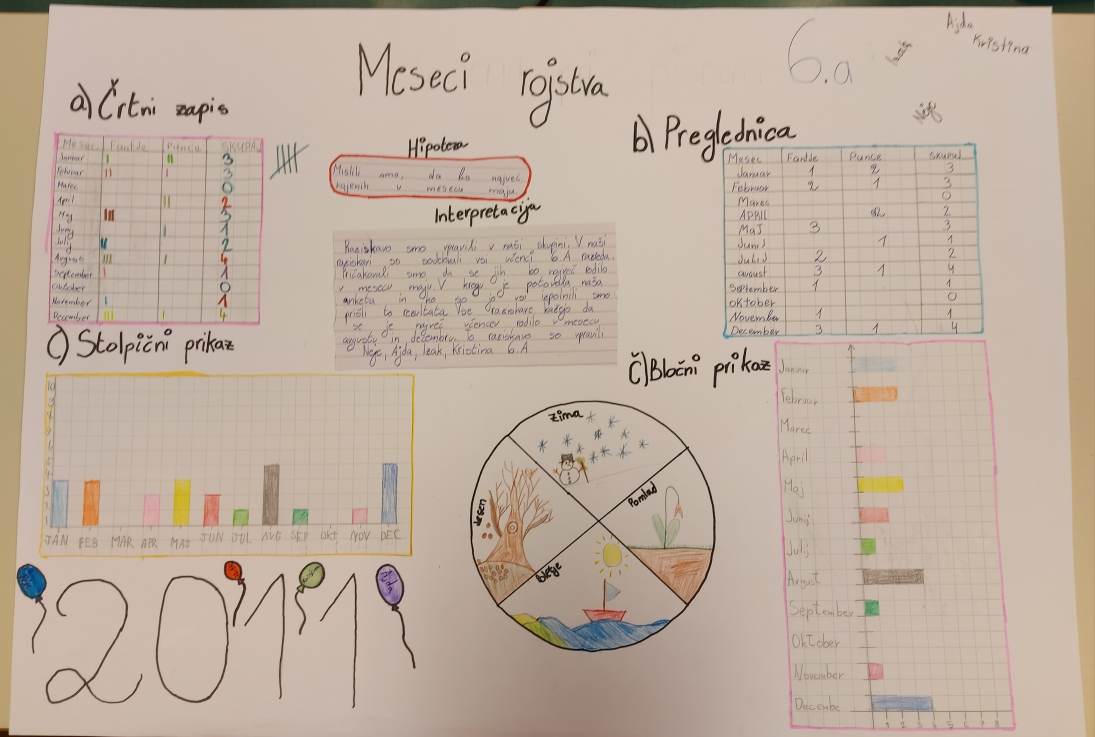 Meseci rojstva
6.a
Ajda
Kristina
a) Črtni zapis
Mesec Fantje Punce SKUPAJ
Januar 3
Februar 3
Marec 0
April 2
Maj 3
Junij 1
Julij 2
Avgust 4
September 1
Oktober 0
November 1
December 4
Hipoteza
Mislili smo, da bo največ
rojenih v mesecu maju.
Interpretacija
Raziskavo smo opravili v naši skupini. V naši
raziskavi so sodelovali vsi učenci 6.A razreda.
Pričakovali smo da se jih bo največ rodilo
v mesecu maju. V krogu je potovala naša
anketa in ko so jo vsi izpolnili smo
prišli do rezultata. Vse raziskave kažejo da
se je največ učencev rodilo v mesecu
avgustu in decembru. To raziskavo so opravili
Neje, Ajda, Izak, Kristina 6.A
b) Preglednica
Mesec Fantje Punce skupaj
Januar 1 2 3
Februar 2 1 3
Marec 0
APRIL 2 2
Maj 3 3
Junij 1 1
Julij 2 2
avgust 3 1 4
September 1 1
oktober 0
November 1 1
December 3 1 4
c) Stolpični prikaz
JAN FEB MAR APR MAJ JUN JUL AVG SEP OKT NOV DEC
č) Bločni prikaz
Januar
Februar
Marec
April
Maj
Junij
Julij
Avgust
September
Oktober
November
Decembe
1 2 3 4 5 6 7 8
zima
Jesen
Pomlad
Poletje
2011